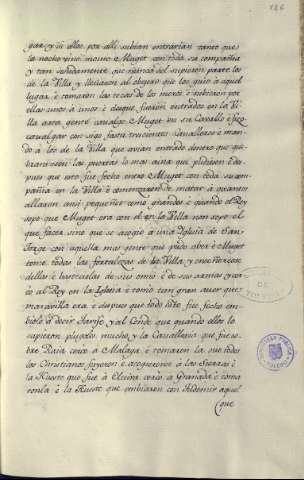 186
gar, y si ellos por alli subian entrarian tanto que
la noche vino movio Muget con toda su compañia
y tan sesudamente que nunca del supieron parte los
de la Villa y llevavalos al obispo que los guio a aquel
lugar, e tomaron las tocas de los moros e subieron por
ellas unos a unos e desque fueron entrados en la Vi
lla asta gente cavalgo Muget en su Cavallo e fizo
cavalgar con sigo fasta trucientos Cavalleros e man
do a los de la Villa que avian entrado dentro que que
brantasen las puertas lo mas aina que pudiesen e des
pues que esto fue fecho entro Muget con toda su com
pañia en la Villa e comenzaron de matar a quantos
allaron ansi pequeños como grandes e quando el Rey
sopo que Muget era con el en la Villa non sopo el
que facer sino que se acogio a una Iglesia de San
Jorge con aquella mas gente que pudo aber e Muget
tomo todas las fortalezas de la Villa, y enseñorose
dellas e basteciolas de sus omes e de sus armas y cer
co al Rey en la Iglesia e como tan gran aver que
maravilla era e despues que todo esto fue fecho em
biolo a decir Tarife y al Conde que quando ellos lo
supieron plugoles mucho, y la Cavalleria que fue so
bre Raia cerco a Malaga e tomaronla que todos
los Christianos fuyeron e acogieronse a las Sierras e
la Hueste que fue a Elvira cerco a Granada e toma
ronla e la Hueste que embiaron con Tudemir aquel
que